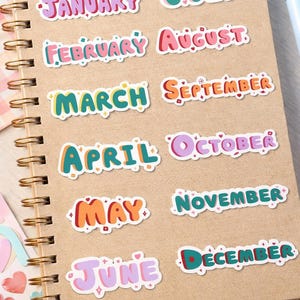 January
February
August
March
September
April
October
May
November
June
December